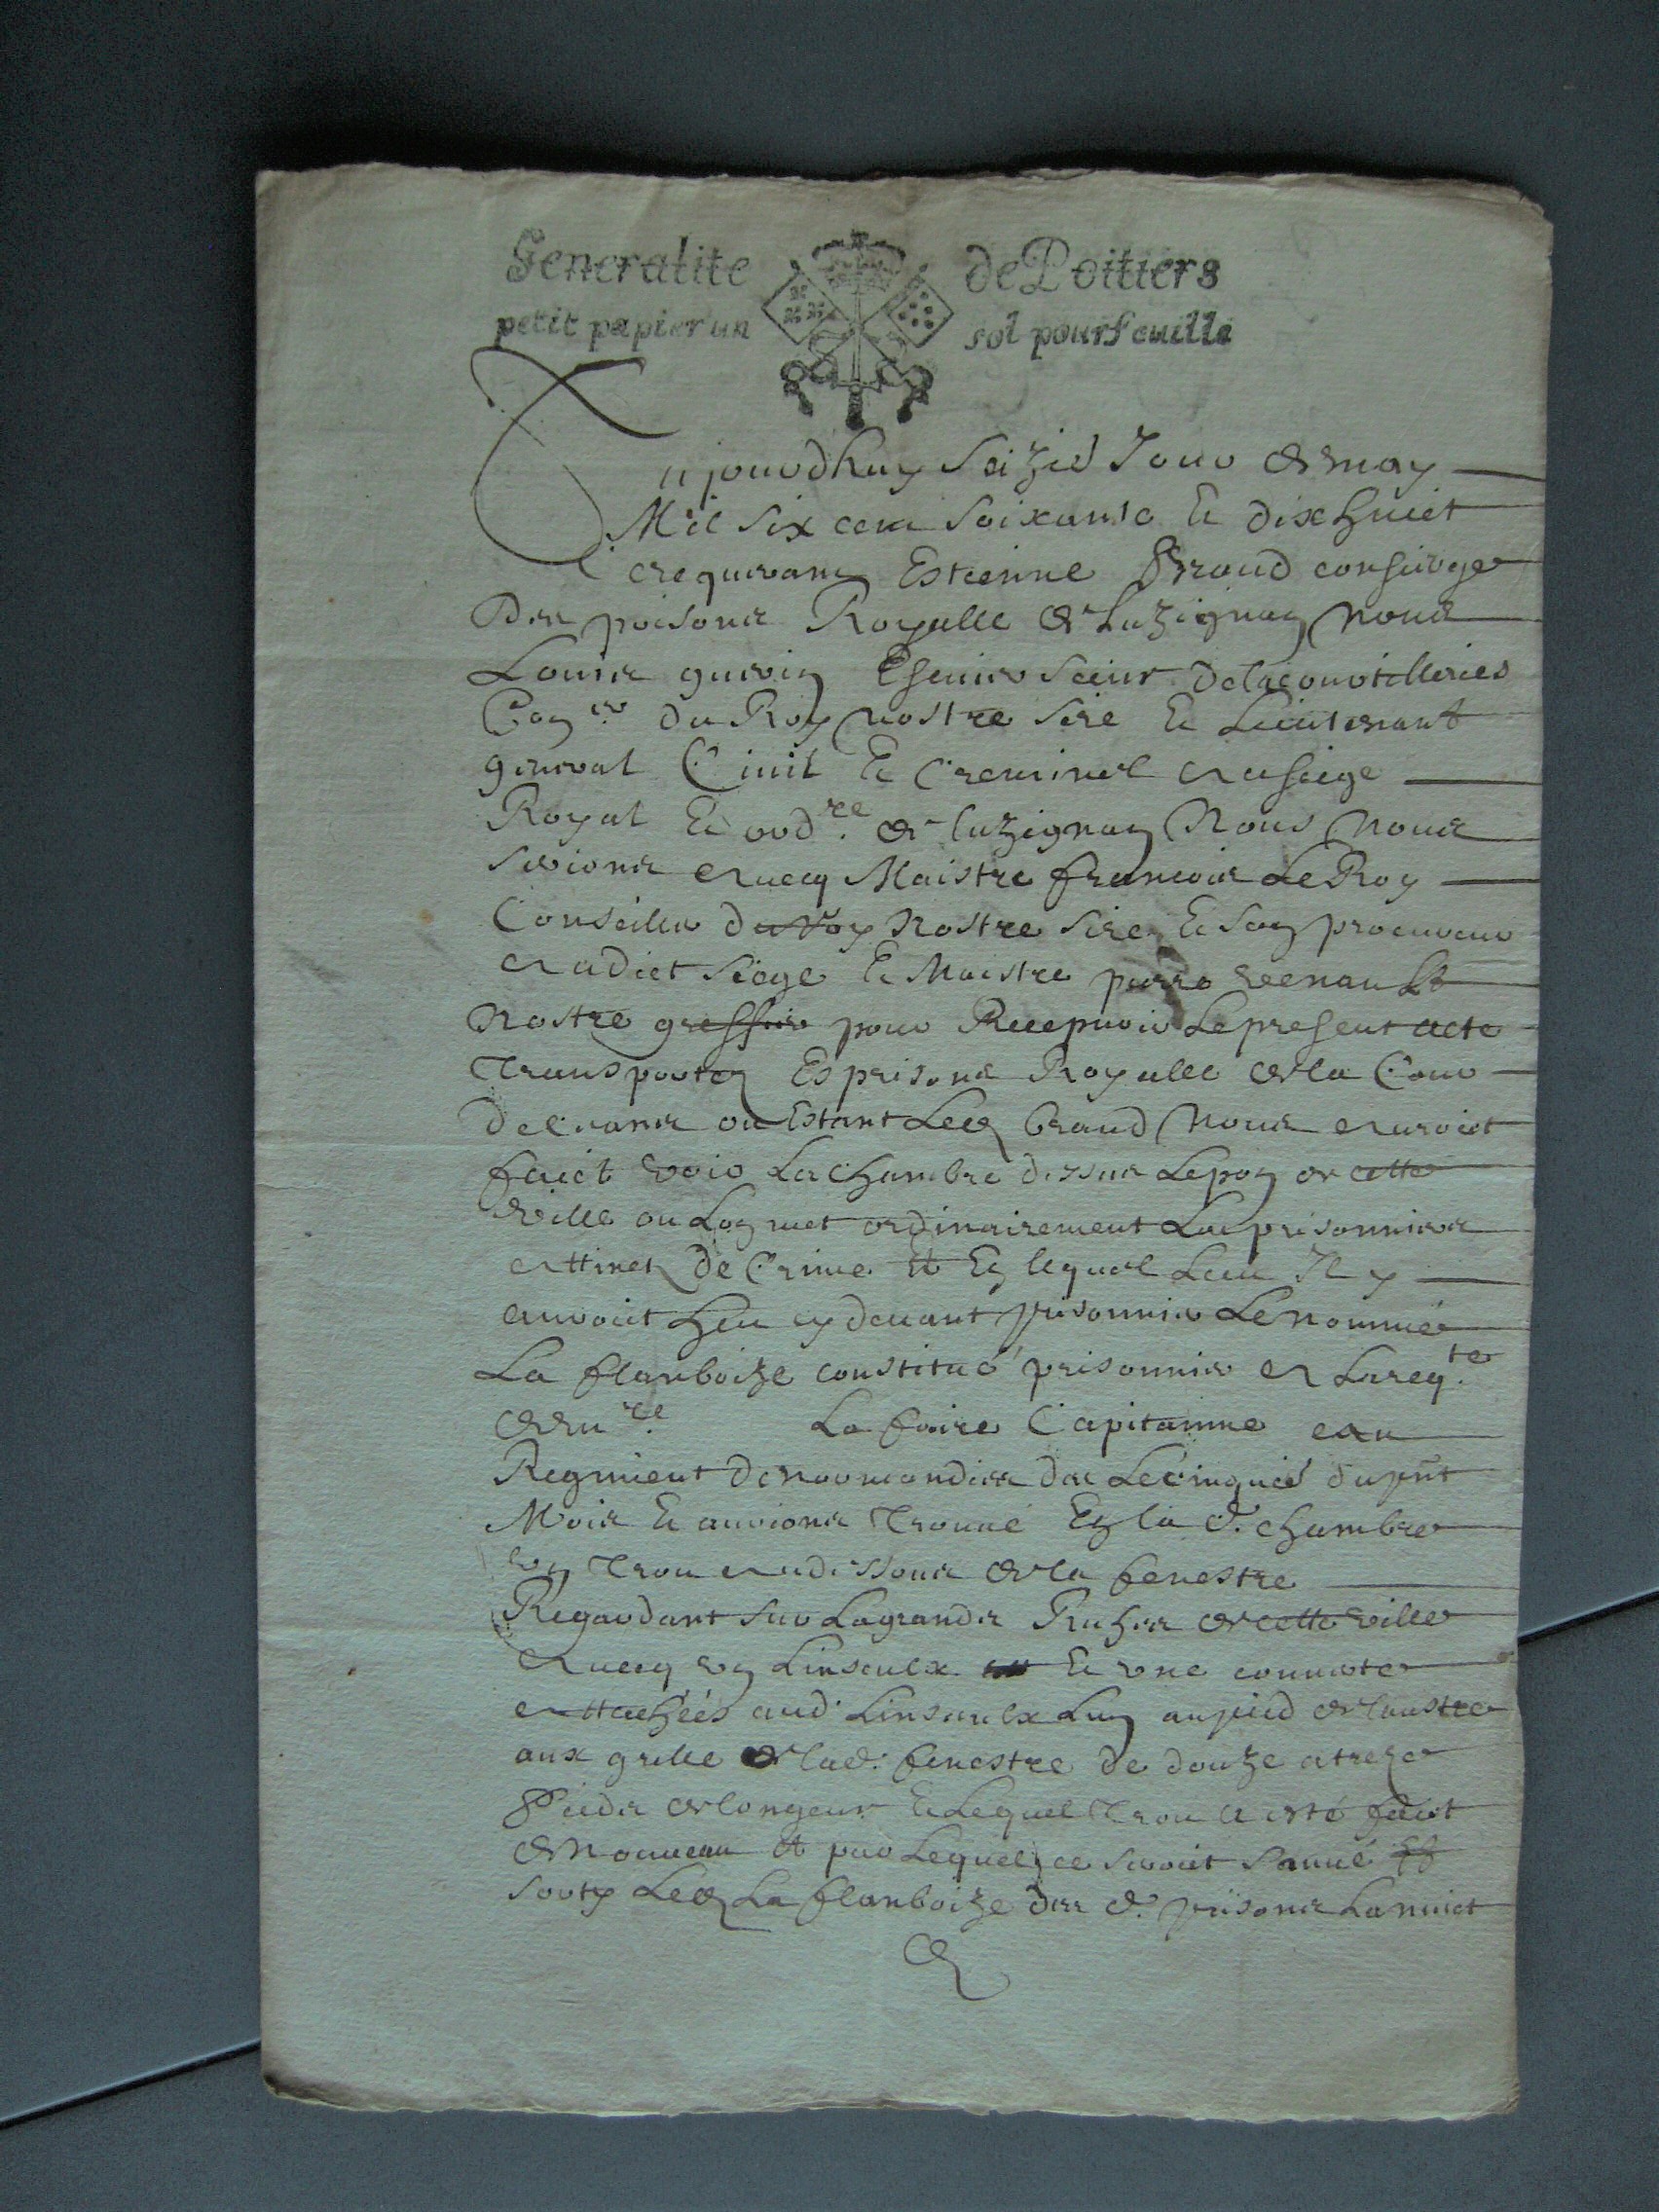 Generalite de Poitiers
petit papier un sol pour feuille
Aujourdhuy seizie Jour de may
Mil six cens soixante & dix huict
ce requerant Estienne Braud consierge
des prisons Royalle de Luzignan nous
Louis guerin Escuier sieur de la courtilleries
Coner du Roy nostre sire & Lieutenant
general Civil & Creminel au siege
Royal & ordre de luzignan Nous nous
serions avecq Maistre francois Le Roy
Conseiller du Roy Nostre sire & son procureur
audict siege & Maistre pierre venault
Nostre greffier pour Recepvoir Le present acte
transportez Es prisons Royalle de la Cour
de ceans ou Estant Led braud nous auroict
faict voir La chambre dessus Le pon de cette
ville ou Lon met ordinairement Les prisonniers
attinct de Crime et En lequel Lieu Il y
auroict heu cy devant prisonnier Le nommé
La flanboize constitué prisonnier a La reqte
de La faire Capitaine au
Regiment de normandies des Le cinquie du pnt
Mois & aurions trouvé En la d. chambre
un trou au dessous de la fenestre
Regardant sur La grande Rue de cette ville
avecq un Linseulx & une couverte
attachées aud. Linseulx Lun au pied de laustre
aux grille de lad. fenestre de douze a treze
Pieds de longeur & Lequel trou a esté faict
de Nouveau et par Lequel ce seroict sauvé et
sorty Led La flanboize des d. prisons La nuict